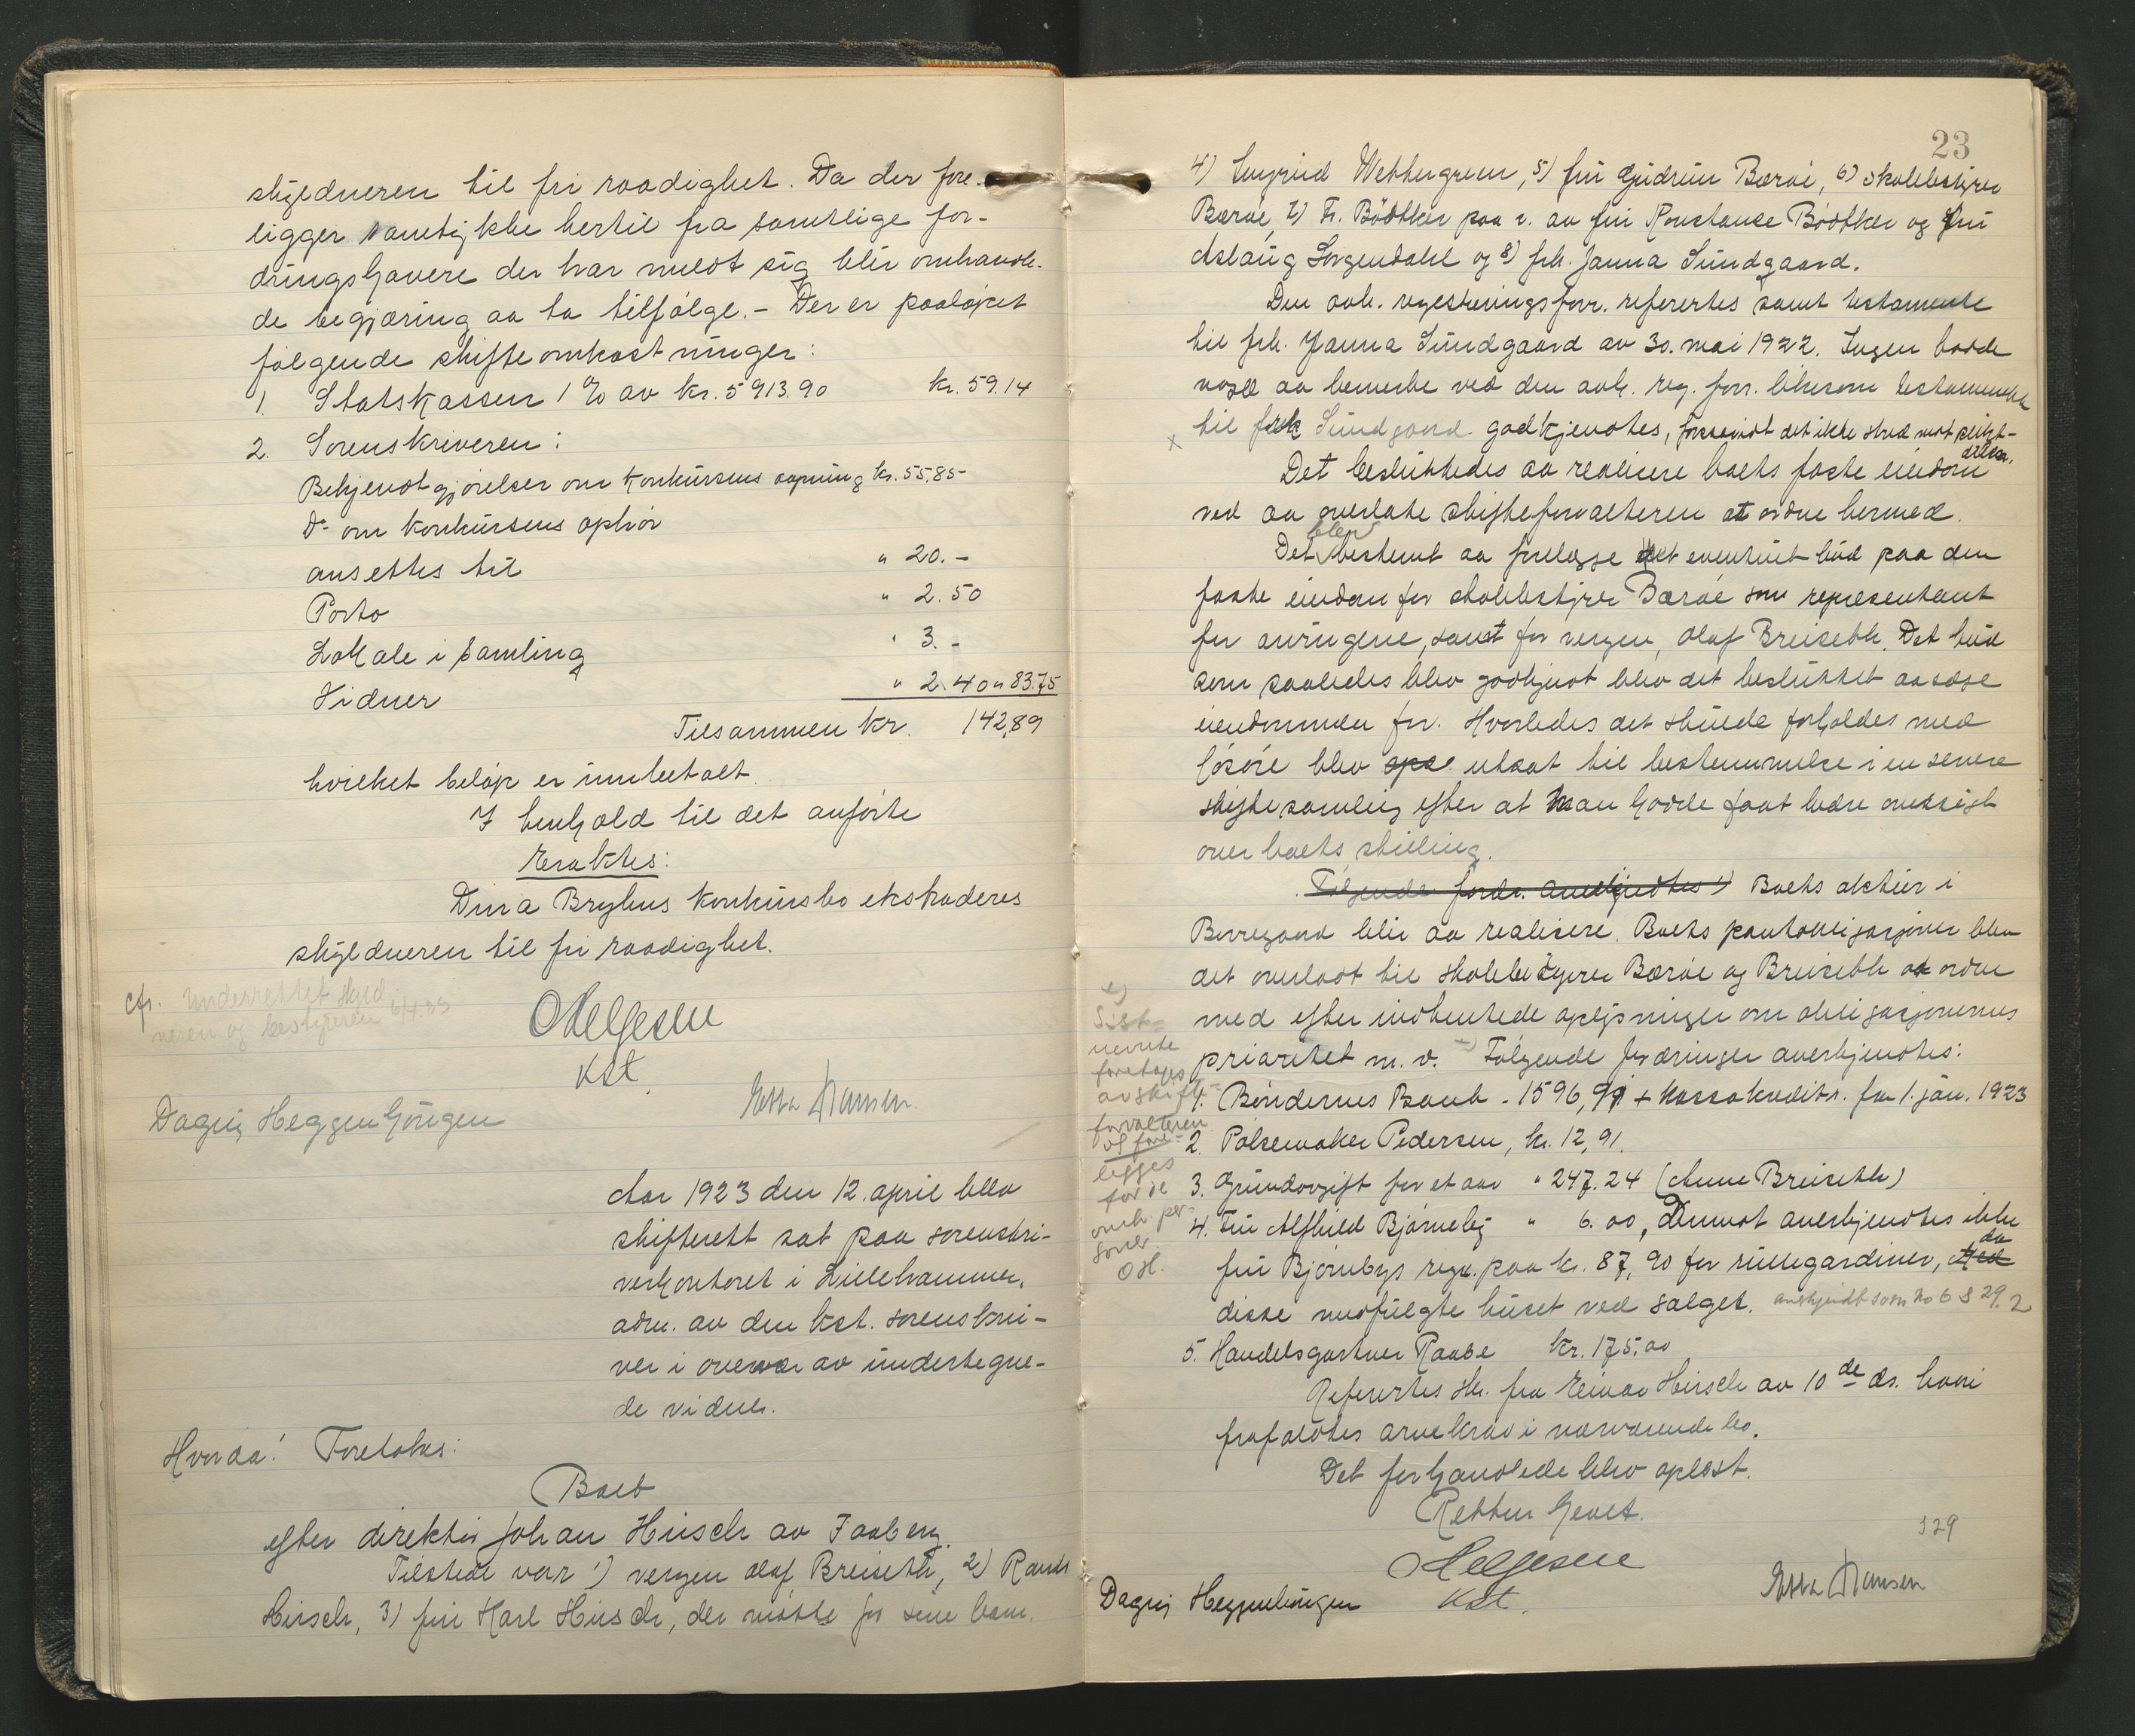 skyldneren til fri raadighet. Da der fore-
ligger samtykke hertil fra samtlige for-
dringshavere der har meldt sig blir omhandle-
de begjæring aa ta tilfølge. - Der er paaløpet
følgende skifteomkostninger:
1. Statskassen 1% av kr. 5913.90 kr. 59.14
2. Sorenskriveren:
Bekjendtgjørelser om konkursens aapning kr. 55.85
Do om konkursens ophør
ansettes til " 20.-
Porto " 2.50
Lokale i samling " 3.-
Vidner " 2.40 " 83.75
Tilsammen kr. 142,89
hvilket beløp er innbetalt.
I henhold til det anførte
eraktes:
Dina Bryhns konkursbo ekstraderes
skyldneren til fri raadighet.
cfr. Underrettet skyld-
neren og bestyreren 6/4.23
OHelgesen
Kst.
Dagny Heggenhougen
Hansen.
Aar 1923 den 12. april blev
skifterett sat paa sorenskri-
verkontoret i Lillehammer,
adm. av den kst. sorenskri-
ver i overvær av undertegne-
de vidner.
Hvorda! Foretokes:
Boet
efter direktør Johan Hirsch av Faaberg.
Tilstede var 1) vergen Olaf Breiseth, 2) Randi
Hirsch, 3) fru Karl Hirsch, der møtte for sine barn.
23
4) Ingrid Wettergreen, 5) fru Gudrun Barøe, 6) skolebestyrer
Barøe, 7) Fr. Bødtker paa v. av fru Konstance Bødtker og fru
Aslaug Sorgendahl og 8) frk. Janna Sundgaard.
Den avh. registreringsforr. refertes samt testamente
til frk. Janna Sundgaard av 30. mai 1922. Ingen hadde
noget aa bemerke ved den avh. reg. forr. likesom testamentet
x til frk Sundgaard godkjendtes, forsaavidt det ikke stred mot pligt-
delen.
Det besluttedes aa realisere boets faste eiendom
ved aa overlate skifteforvalteren at ordne hermed.
Det blev bestemt aa forelægge det eventuelt bud paa den
faste eiendom for skolebestyrer Barøe som representant
for arvingene, samt for vergen, Olaf Breiseth. Det bud
som saaledes blev godkjent blev det besluttet aa sælge
eiendommen for. Hvorledes det skulde forholdes med
løsøre blev utsat til bestemmelse i en senere
skiftesamling efter at man hadde faat bedre oversigt
over boets stilling.
Følgende fordr. anerkjendtes 1) Boets aktier i
Borregaard blir aa realisere. Boets pantobligasjoner blev
det overlatt til skolebestyrer Barøe og Breiseth at ordne
med efter indhentede oplysninger om obligasjonernes
prioritet m.v. x) Følgende fordringer anerkjendtes:
x)
Sist-
nevnte
foretages
av skifte-
forvalteren
og fore-
legges
for de
omh. per-
soner
OH.
1. Bøndernes Bank - 1596,91 + kassakreditr. fra 1. jan. 1923
2. Pølsemaker Pedersen, kr. 12,91.
3. Grundavgift for et aar " 247.24 (Anne Breiseth)
4. Fru Alfhild Bjørneby " 6.00, derimot anerkjendtes ikke
fru Bjørnebys regn. paa kr. 87,90 for rullegardiner, da
disse medfulgte huset ved salget. anerkjendt som no 6 S 29.2
5. Handelsgartner Raabe kr. 175,00
Refertes skr. fra Einar Hirsch av 10de ds. hvori
frafaldtes arvekrav i nærværende bo.
Det forhandlede blev oplæst.
Retten hevet.
S 29
OHelgesen
Kst.
Dagny Heggenhougen
Hansen